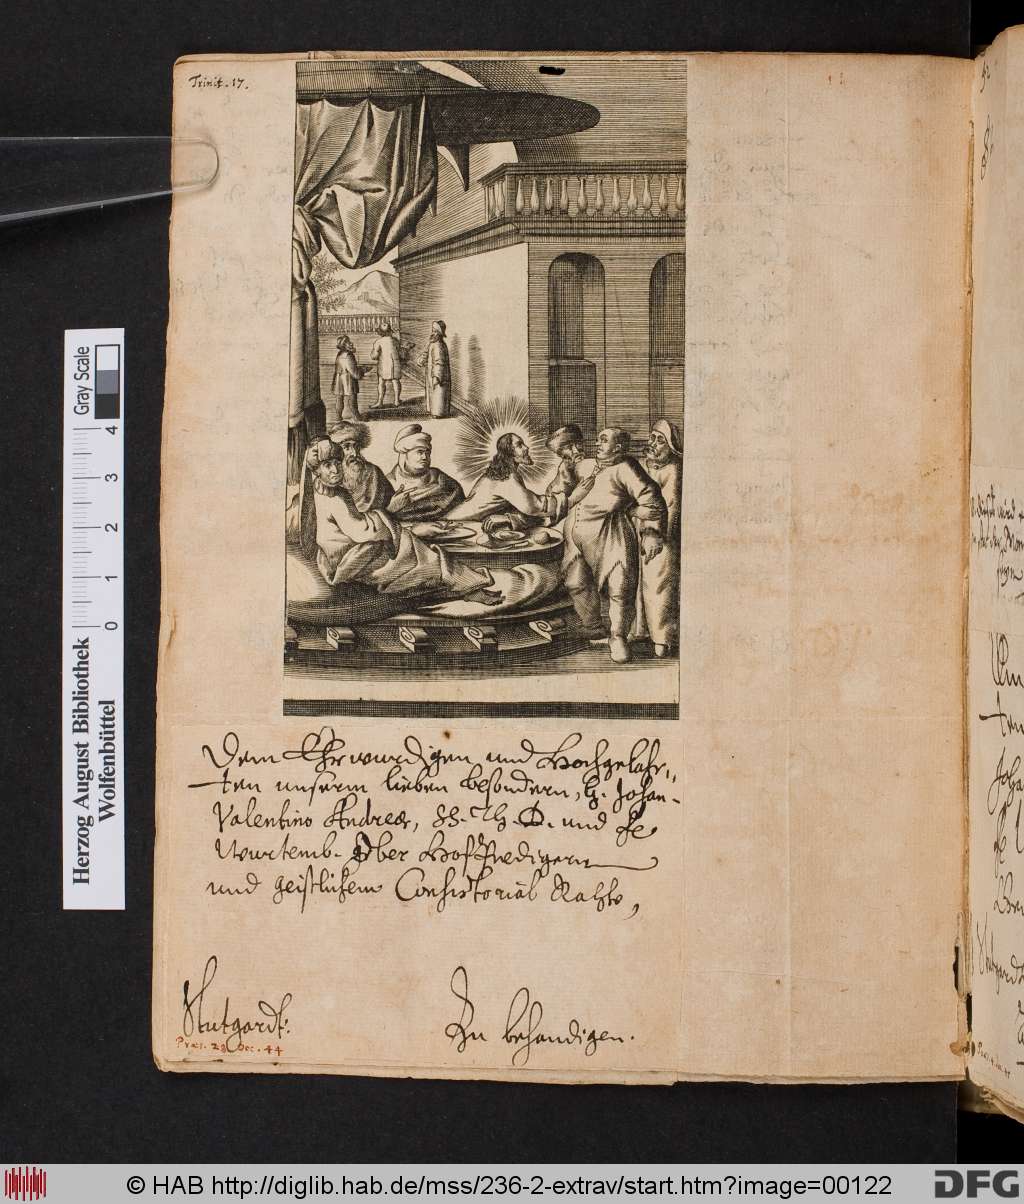 Trinit. 17.
Dem Ehrwurdigen und Hochgelahr,,
ten unserm lieben besondern, H. Johan-
Valentino Andreæ, SS. Th. D. und fe
Wurtemb. Ober HofPredigern
und geistlichem Consistorial Rahte,
Stutgardt.
Zu behandigen.
Præs. 28 Dec. 44
Herzog August Bibliothek
Wolfenbüttel
Gray Scale
0 1 2 3 4
© HAB http://diglib.hab.de/mss/236-2-extrav/start.htm?image=00122
DFG